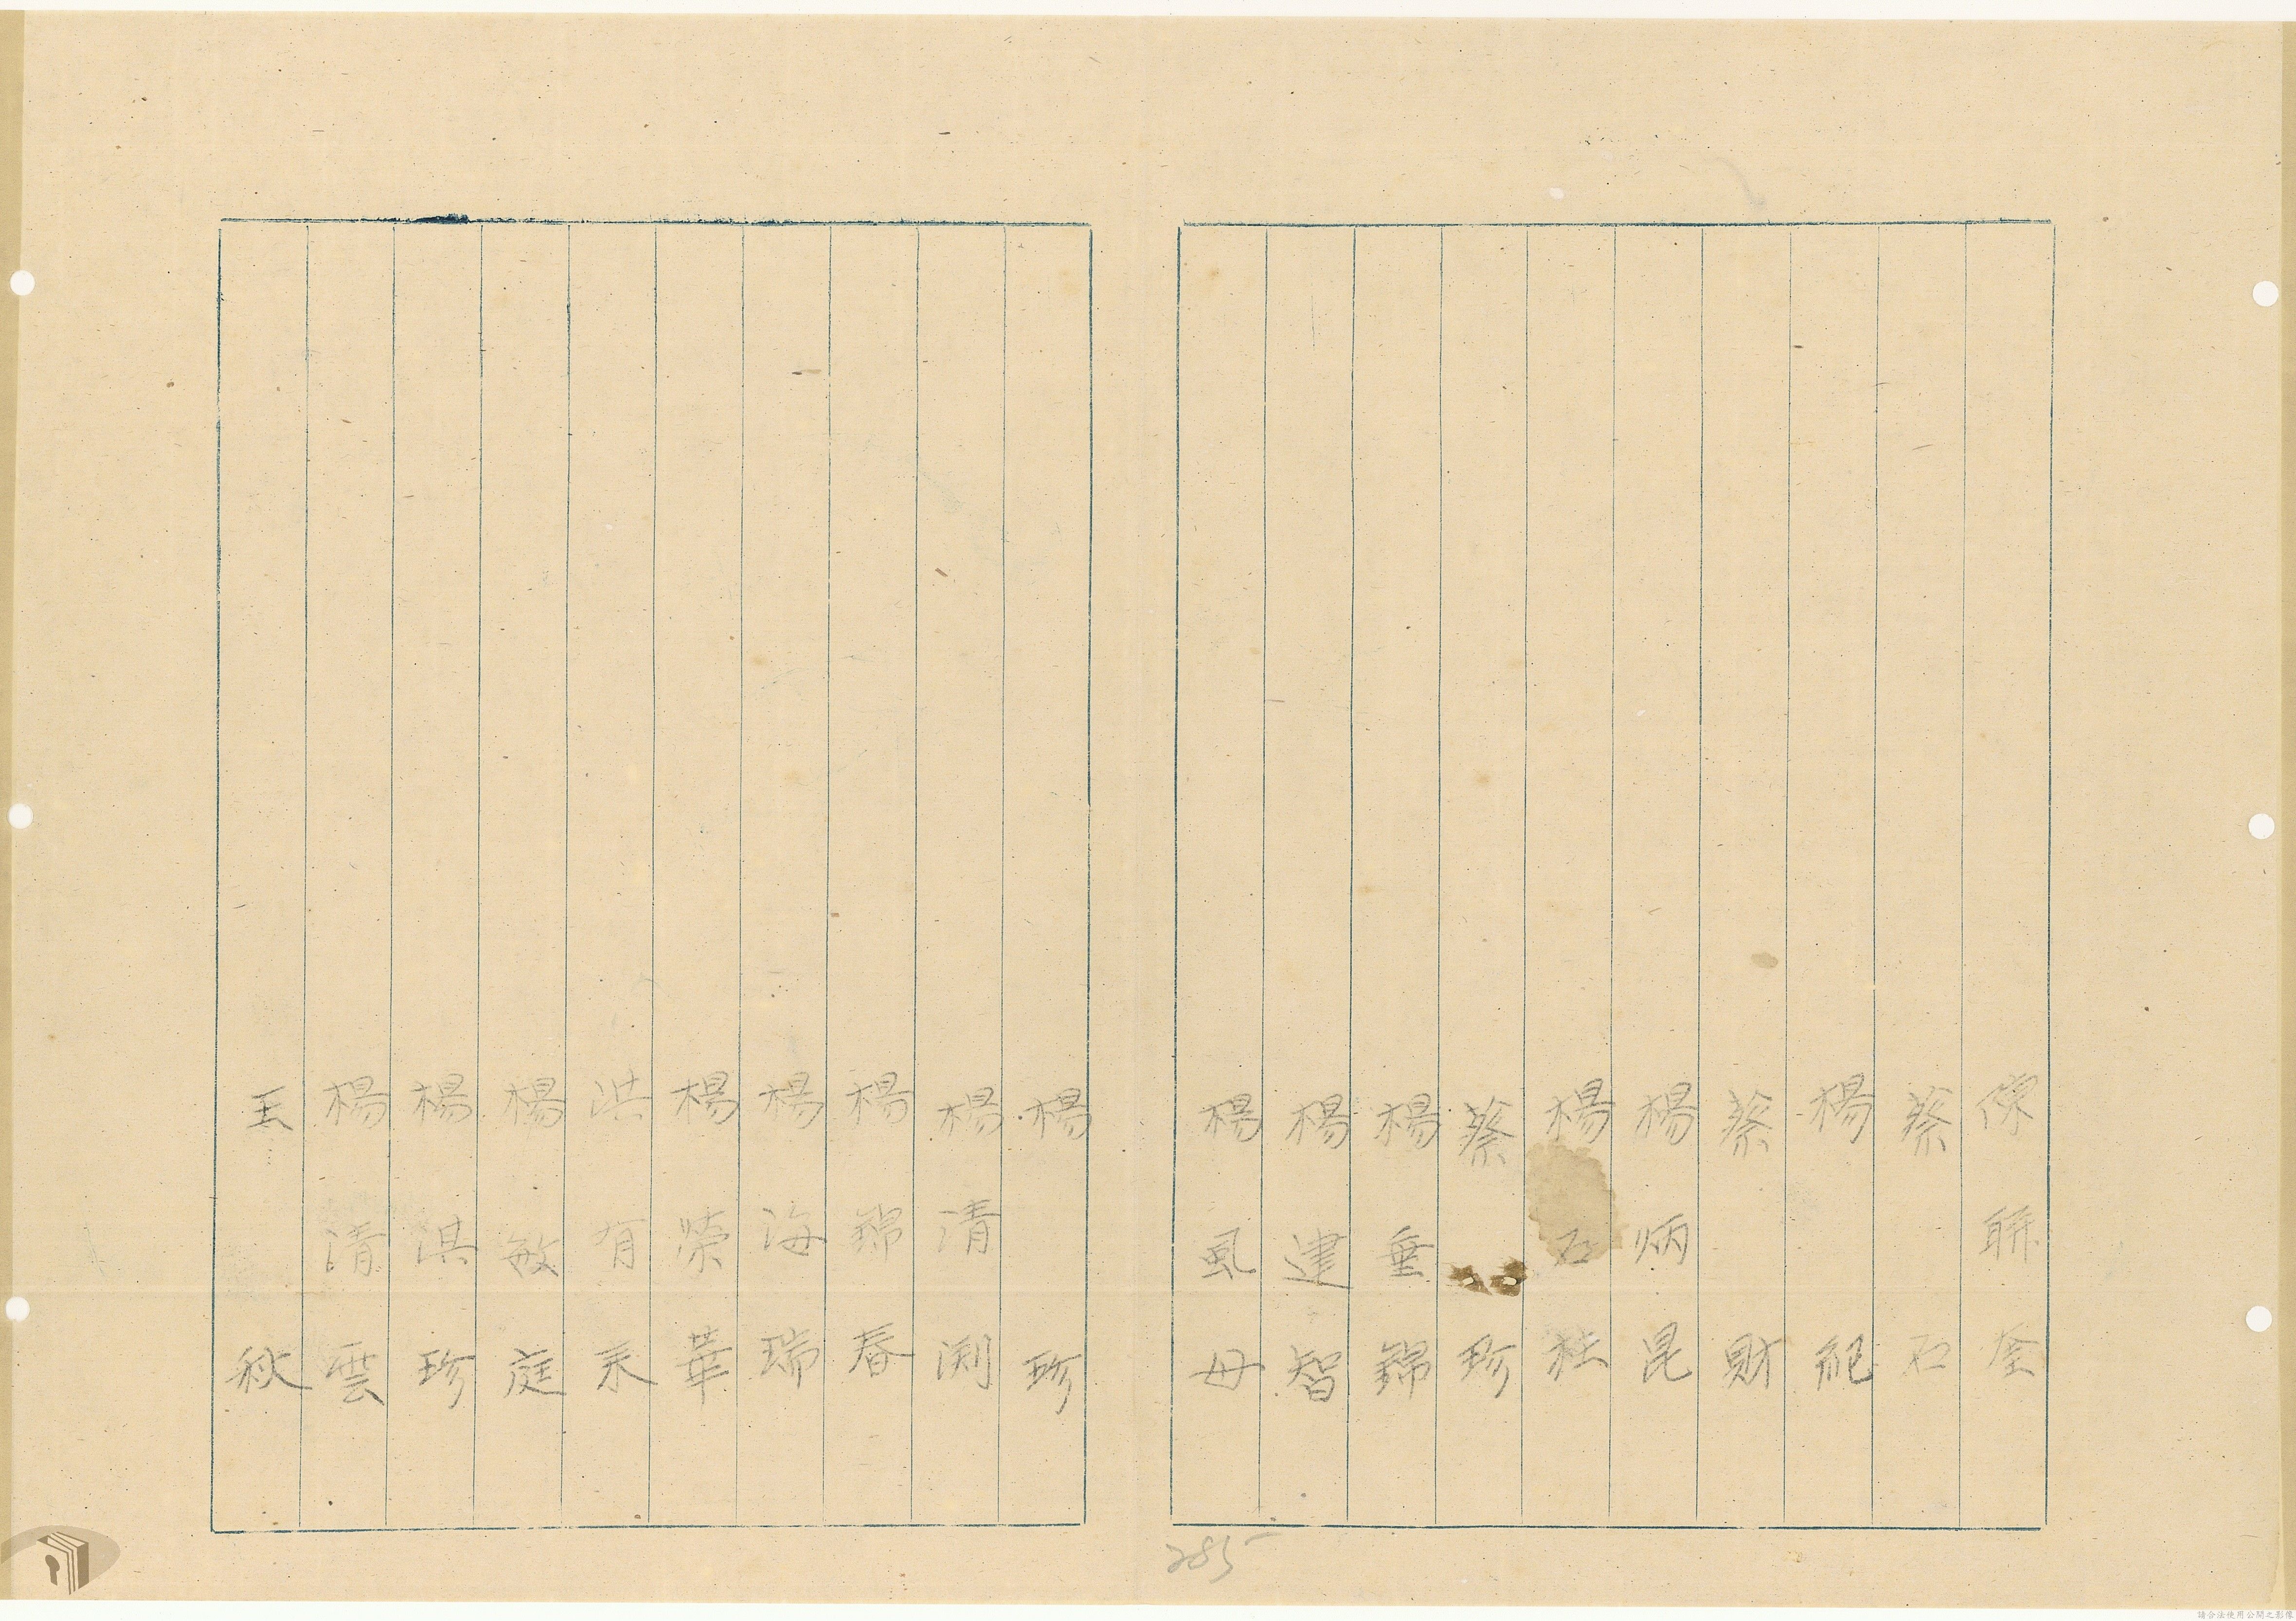 陳聯奎
蔡石
楊紀
蔡財
楊炳昆
楊石柱
蔡珍
楊垂錦
楊建智
楊虱母
楊珍
楊清渕
楊錦春
楊海瑞
楊榮華
洪有來
楊敏庭
楊淇珍
楊清雲
王秋
285
請合法使用公開之影像